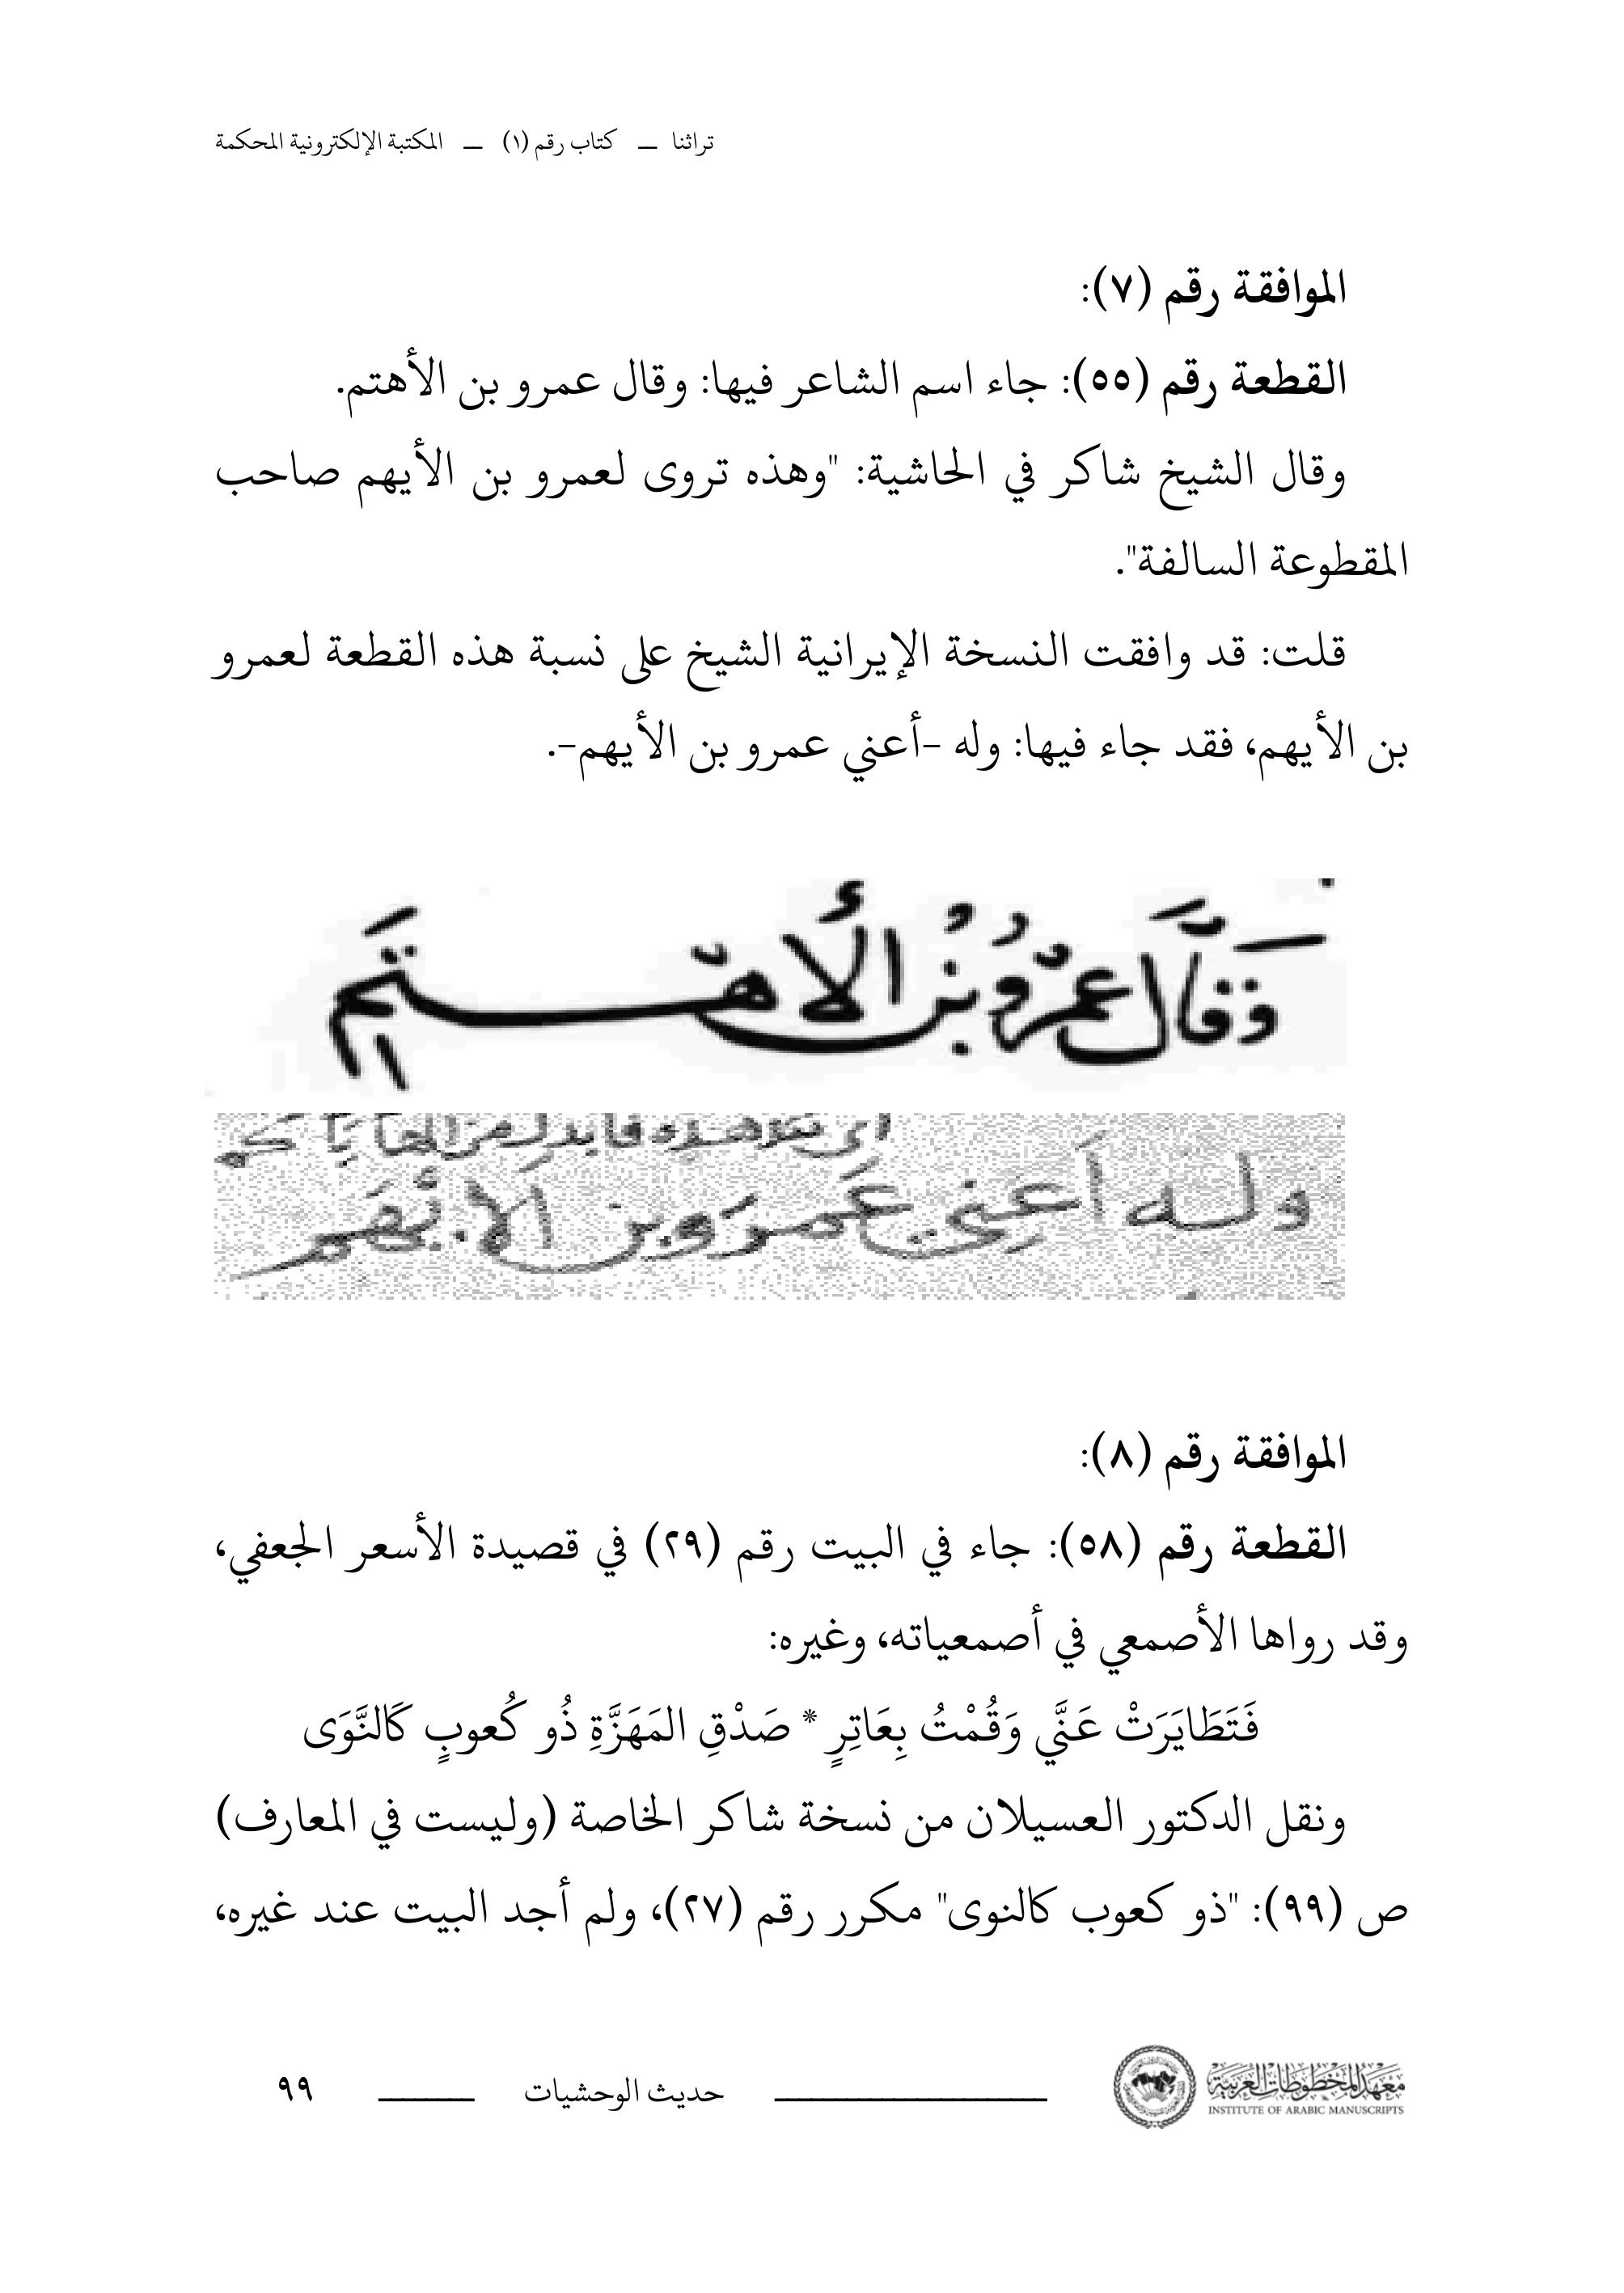 تراثنا — كتاب رقم (١) — المكتبة الإلكترونية المحكمة
الموافقة رقم (٧):
القطعة رقم (٥٥): جاء اسم الشاعر فيها: وقال عمرو بن الأهتم.
وقال الشيخ شاكر في الحاشية: "وهذه تروى لعمرو بن الأيهم صاحب
المقطوعة السالفة".
قلت: قد وافقت النسخة الإيرانية الشيخ على نسبة هذه القطعة لعمرو
بن الأيهم، فقد جاء فيها: وله -أعني عمرو بن الأيهم-.
وَقَالَ عمرُو بْنُ الأَهْتَم
وله أَعني عَمرَو بن الأيهَم
الموافقة رقم (٨):
القطعة رقم (٥٨): جاء في البيت رقم (٢٩) في قصيدة الأسعر الجعفي،
وقد رواها الأصمعي في أصمعياته، وغيره:
فَتَطَايَرَتْ عَنَّي وَقُمْتُ بِعَاتِرٍ * صَدْقِ المَهَزَّةِ ذُو كُعوبٍ كَالنَّوَى
ونقل الدكتور العسيلان من نسخة شاكر الخاصة (وليست في المعارف)
ص (٩٩): "ذو كعوب كالنوى" مكرر رقم (٢٧)، ولم أجد البيت عند غيره،
معهد المخطوطات العربية
INSTITUTE OF ARABIC MANUSCRIPTS
حديث الوحشيات
٩٩